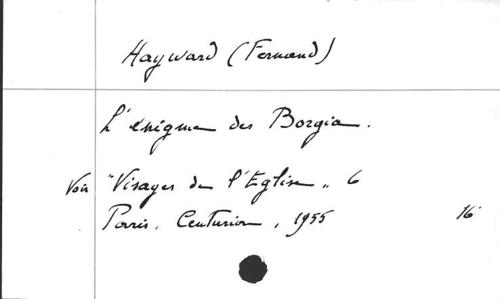 Hayward (Fernand)
L'énigme des Borgia.
Voir "Visages de l'Eglise" 6
Paris, Centurion, 1955 16